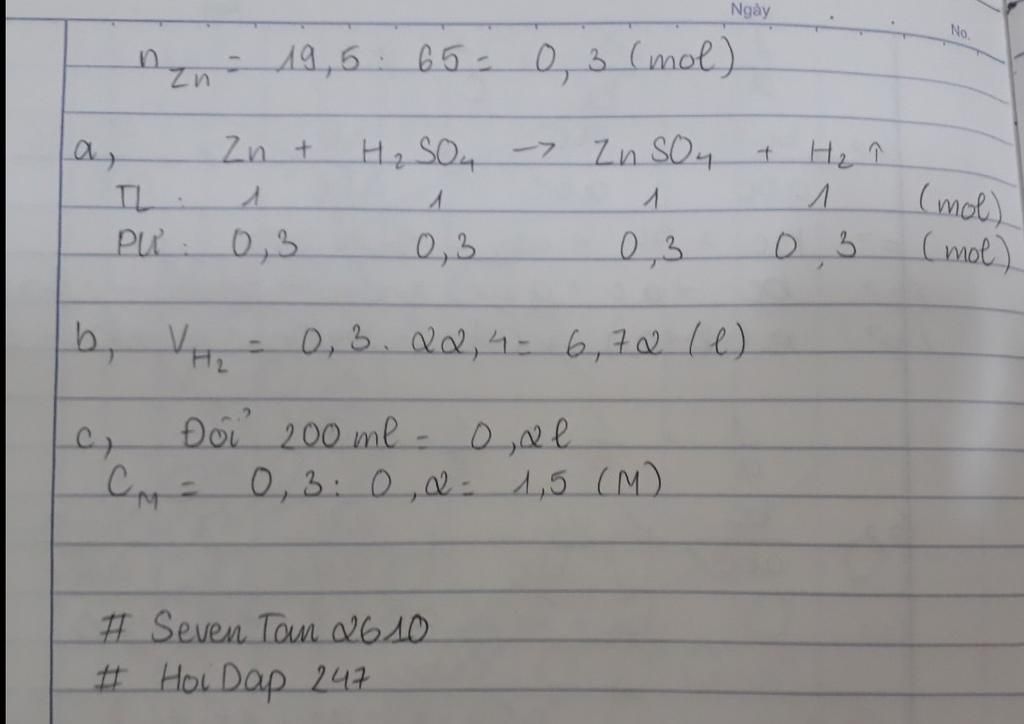 Ngày
No.
n Zn = 19,5 : 65 = 0,3 (mol)
a, Zn + H₂SO₄ → ZnSO₄ + H₂↑
TL : 1 1 1 1 (mol)
PƯ : 0,3 0,3 0,3 0,3 (mol)
b, V H₂ = 0,3 . 22,4 = 6,72 (l)
c, Đổi 200 ml = 0,2l
C M = 0,3 : 0,2 = 1,5 (M)
# Seven Tan 2610
# Hoi Dap 247